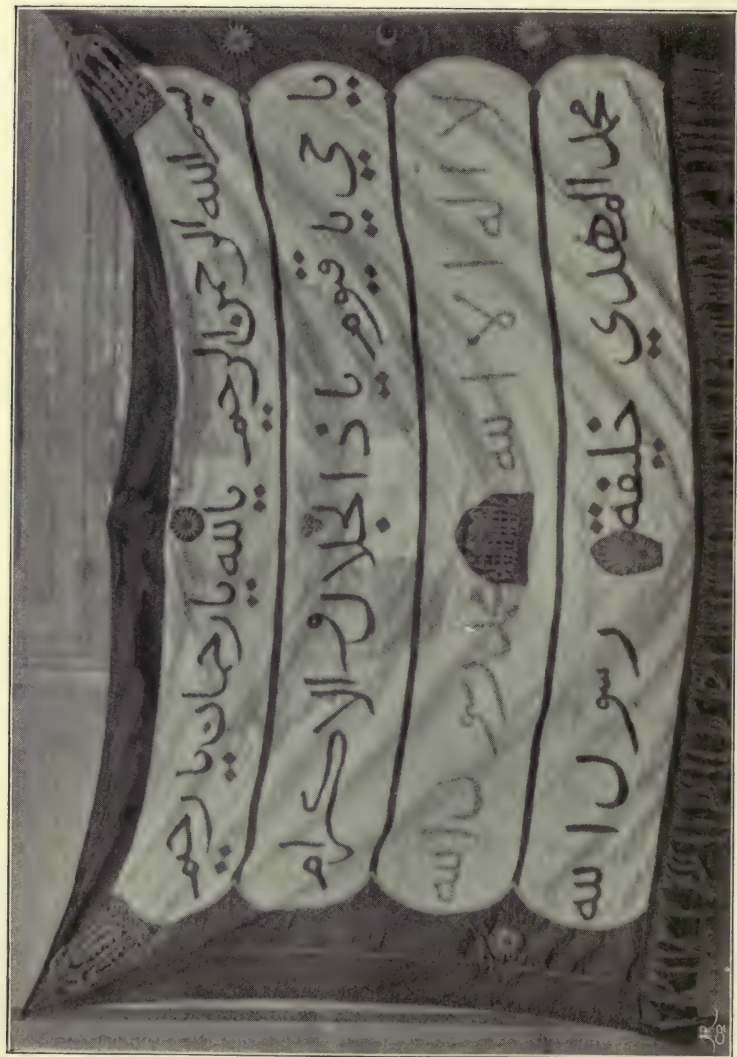 بسم الله الرحمن الرحيم يالله يارحمان يارحيم
يا حي يا قيوم يا ذالجلال والاكرام
لا اله الا الله محمد رسول الله
محمد المهدي خليفة رسول الله